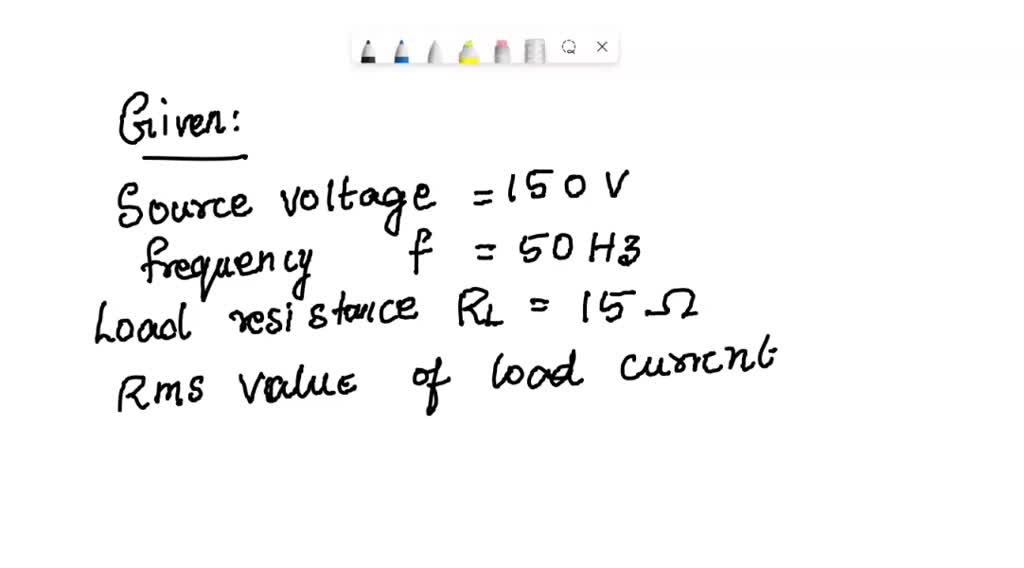 Given:
Source voltage = 150 V
frequency f = 50 Hz
Load resistance RL = 15 Ω
Rms value of load current